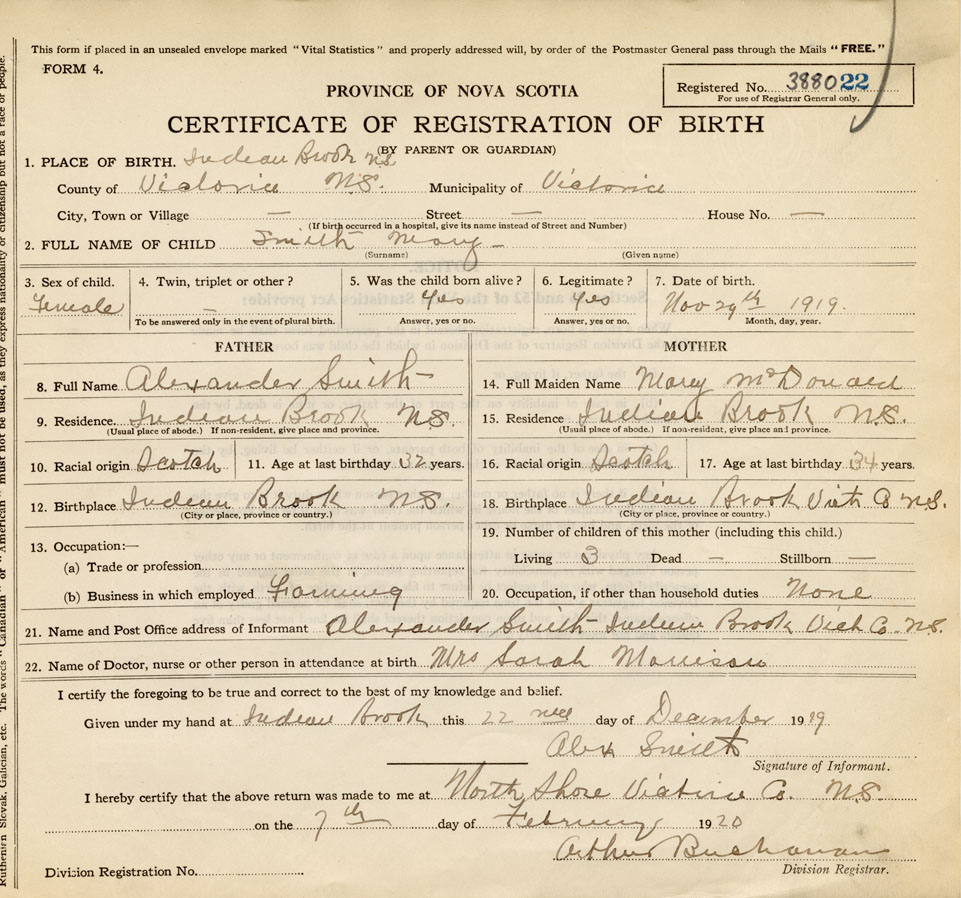 This form if placed in an unsealed envelope marked "Vital Statistics" and properly addressed will, by order of the Postmaster General pass through the Mails "FREE."
FORM 4.
Registered No. 388022
For use of Registrar General only.
PROVINCE OF NOVA SCOTIA
CERTIFICATE OF REGISTRATION OF BIRTH
(BY PARENT OR GUARDIAN)
1. PLACE OF BIRTH. Indian Brook N.S.
County of Victoria N.S. Municipality of Victoria
City, Town or Village — Street — House No. —
(If birth occurred in a hospital, give its name instead of Street and Number)
2. FULL NAME OF CHILD Smith Mary
(Surname) (Given name)
3. Sex of child. 4. Twin, triplet or other? 5. Was the child born alive? 6. Legitimate? 7. Date of birth.
Female — Yes Yes Nov 29th 1919.
To be answered only in the event of plural birth. Answer, yes or no. Answer, yes or no. Month, day, year.
FATHER MOTHER
8. Full Name Alexander Smith 14. Full Maiden Name Mary McDonald
9. Residence. Indian Brook N.S. 15. Residence Indian Brook N.S.
(Usual place of abode.) If non-resident, give place and province. (Usual place of abode.) If non-resident, give place and province.
10. Racial origin Scotch 11. Age at last birthday 32 years. 16. Racial origin Scotch 17. Age at last birthday 34 years.
12. Birthplace Indian Brook N.S. 18. Birthplace Indian Brook Vict Co N.S.
(City or place, province or country.) (City or place, province or country.)
13. Occupation:— 19. Number of children of this mother (including this child.)
(a) Trade or profession Living 3 Dead — Stillborn —
(b) Business in which employed Farming 20. Occupation, if other than household duties None
21. Name and Post Office address of Informant Alexander Smith Indian Brook Vict Co. N.S.
22. Name of Doctor, nurse or other person in attendance at birth Mrs Sarah Morrison
I certify the foregoing to be true and correct to the best of my knowledge and belief.
Given under my hand at Indian Brook this 22 nd day of December 1919
Alex Smith
Signature of Informant.
I hereby certify that the above return was made to me at North Shore Victoria Co. N.S.
on the 7th day of February 1920
Arthur Buchanan
Division Registrar.
Division Registration No.
Ruthenian Slovak, Galician, etc. The words "Canadian" or "American" must not be used, as they express nationality or citizenship but not a race or people.